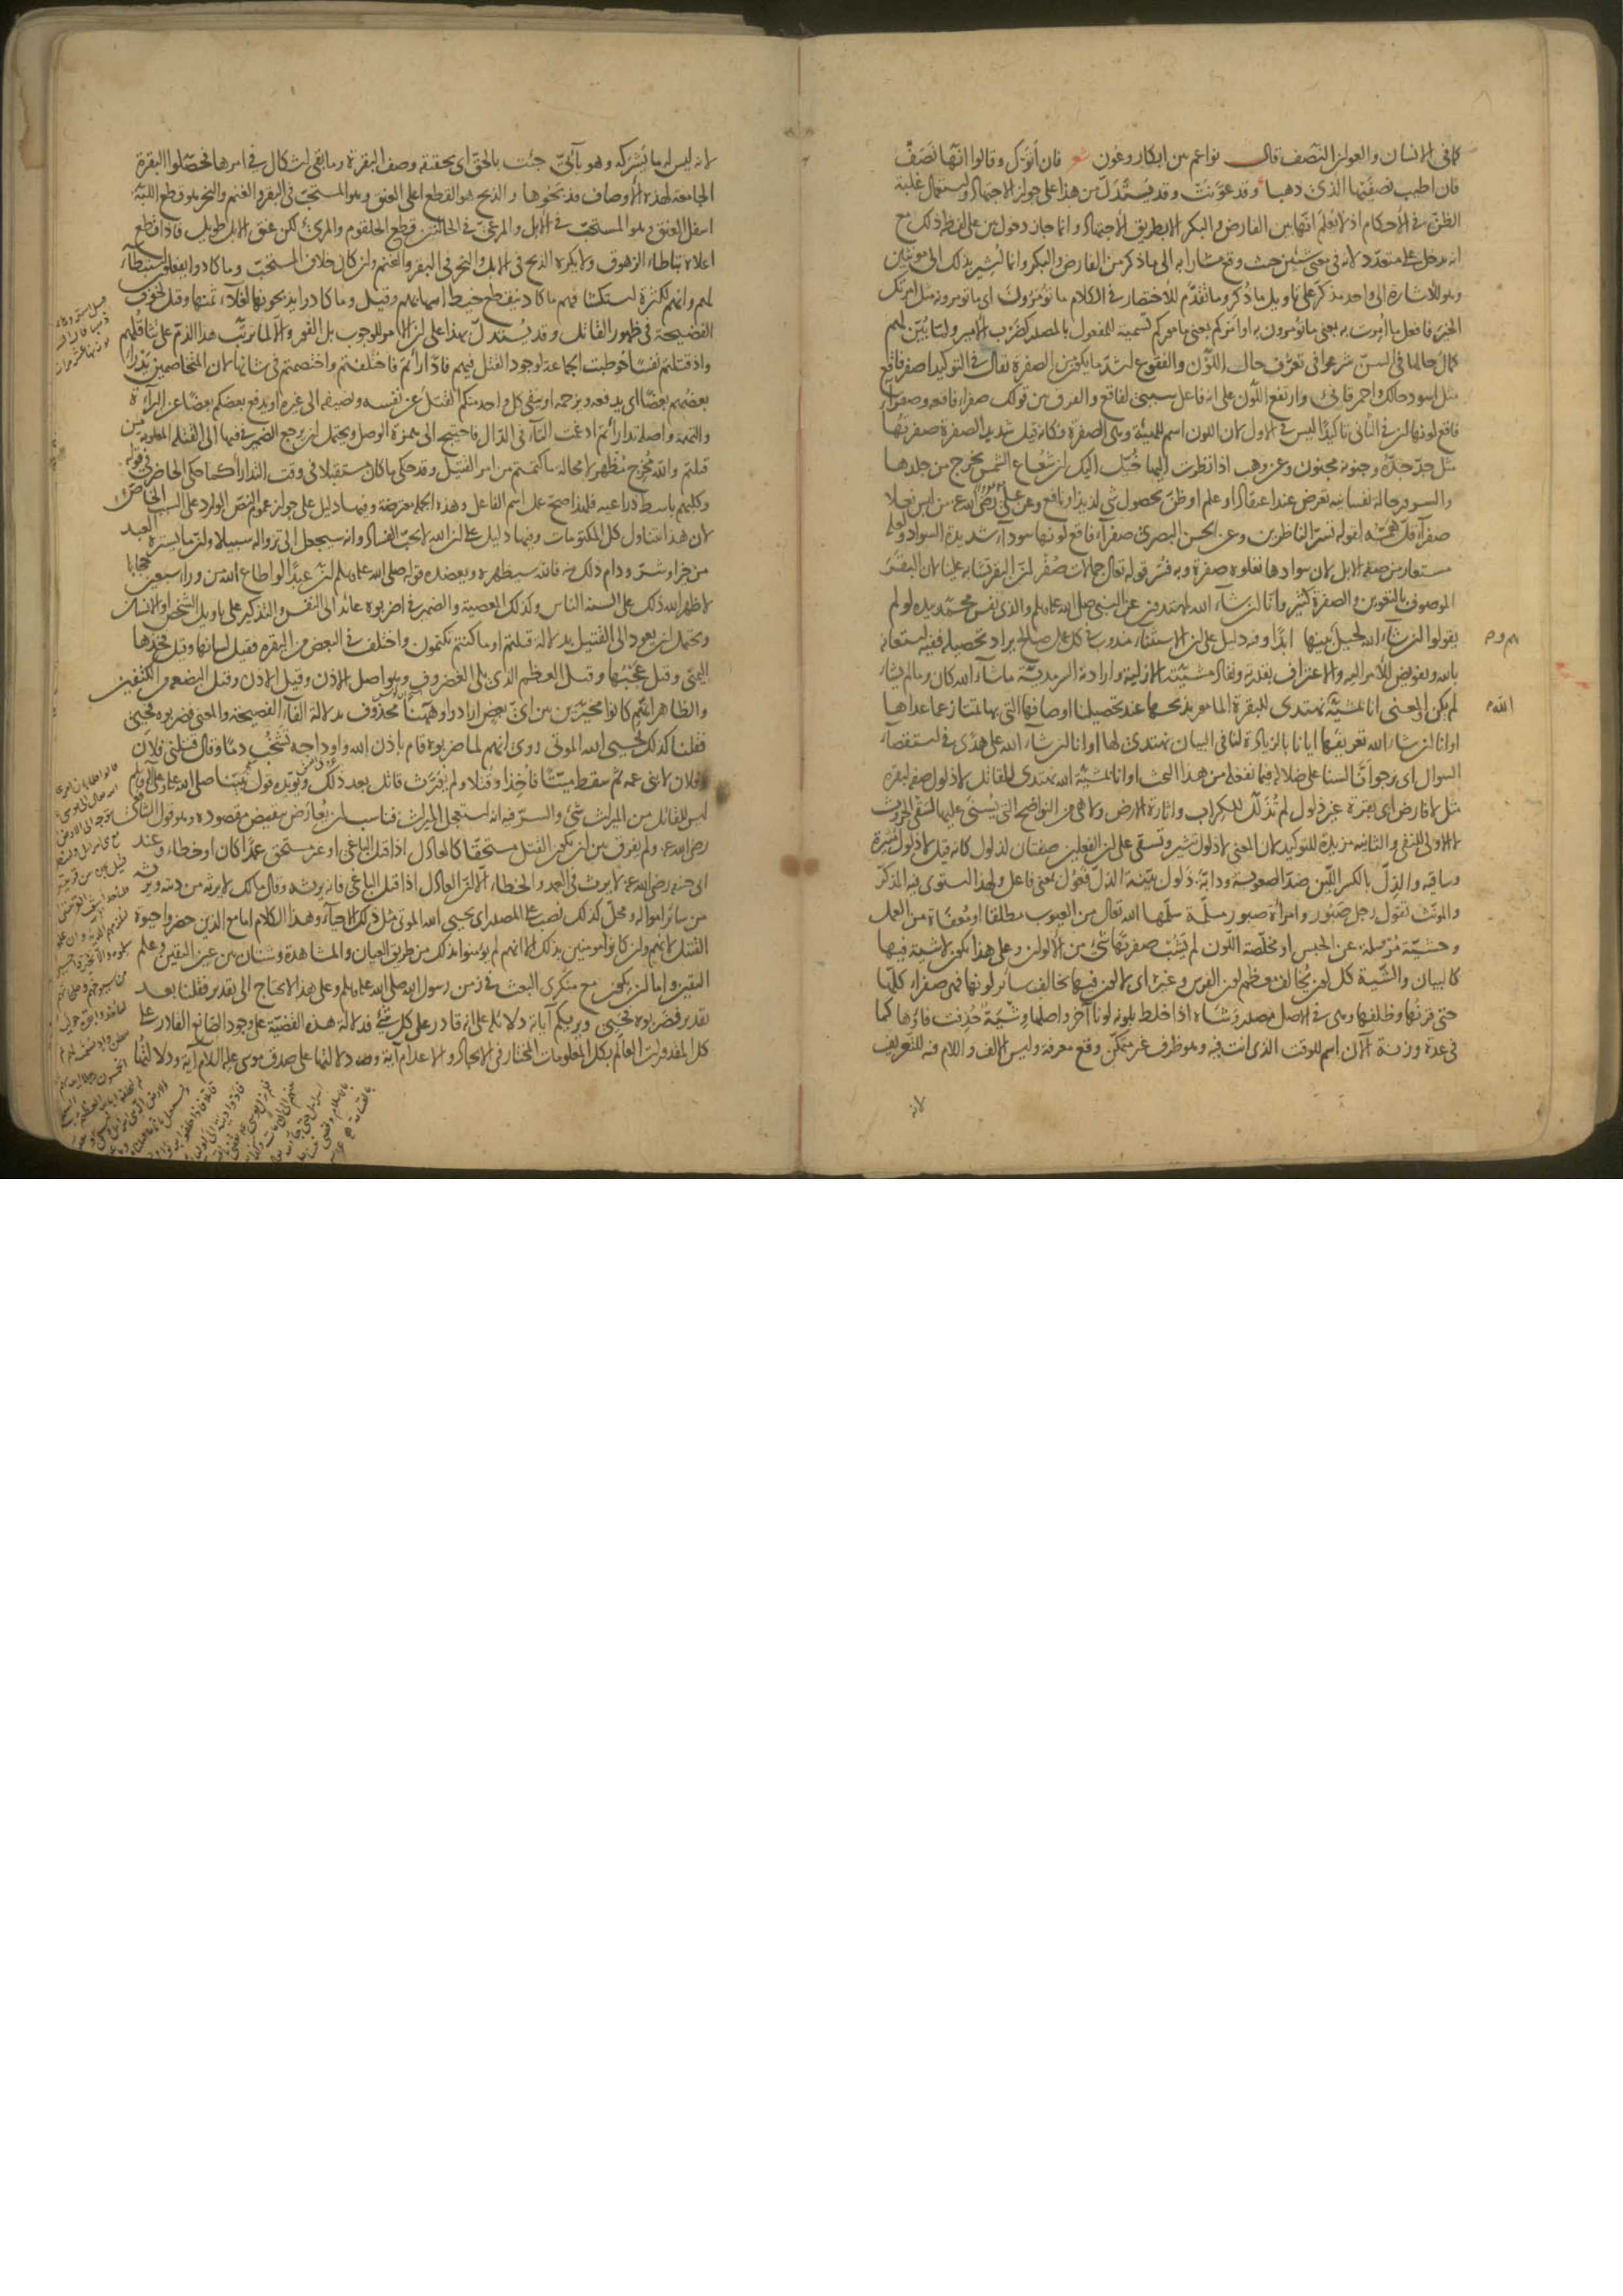 كما في الانسان والعوان النَّصَف قال نواعم بين ابكار وعُون شعر فان اتوك وقالوا انها نَصَفٌ
فان اطيب نصفيها الذي ذهبا وقد عوّنت وقد يُستدلّ من هذا على جواز الاجتهاد واستعمال غلبة
الظن في الاحكام اذ لا يُعلم انها بين الفارض والبكر الا بطريق الاجتهاد وانما جاز دخول بين على لفظ ذلك مع
انه يدخل على متعدد لانه في معنى شيئين حيث وقع مشارا به الى ما ذكر من الفارض والبكر وانما اشير بذلك الى مؤنثين
وهو للاشارة الى واحد مذكر على تاويل ما ذكر وما تقدّم للاختصار في الكلام ما تُؤمَرُونَ اي ما تؤمرونه مثل امرتك
الخير فافعل ما امرت به بمعنى ما تؤمرون به او امركم بمعنى ماموركم تسمية للمفعول بالمصدر كضرب الامير ولما بُيّن لهم
كمال حالها في السنّ شرعوا في تعرّف حال اللّون والفقوع اشدّ ما يكون من الصفرة يقال في التوكيد اصفر فاقع
مثل اسود حالك واحمر قانئ وارتفع اللّون على انه فاعل سببي لفاقع والفرق بين قولك صفراء فاقعة وصفراء
فاقع لونها ان في الثاني تاكيدًا ليس في الاول لان اللون اسم للهيئة وهي الصفرة فكانه قيل شديد الصفرة صفرتُها
مثل جدّ جدّه وجنونه مجنون وعن وهب اذا نظرت اليها خُيّل اليك ان شُعاع الشمس يخرج من جلدها
والسرور حالة نفسانية تعرض عند اعتقاد او علم او ظنّ بحصول شيء لذيذ او نافع وعن علي رضي الله عنه من لبس نعلا
صفراء قلّ همّه لقوله تسرّ الناظرين وعن الحسن البصري صفراء فاقع لونها سوداء شديدة السواد ولعله
مستعار من صفة الابل لان سوادها تعلوه صفرة وبه فُسّر قوله تعالى جمالات صُفْر انّ البقر تشابه علينا ان البقر
الموصوف بالتعوين والصفرة كثير وانّا ان شاء الله لمهتدون عن النبي صلى الله عليه وسلم والذي نفس محمّد بيده لو لم
يقولوا ان شاء الله لحيل بينهم وبينها ابدًا وفيه دليل على ان الاستثناء مندوب في كل عمل صالح يراد تحصيله ففيه استعانة
بالله وتفويض للامر اليه والاعتراف بقدرته ونفاذ مشيئته الازلية وارادته السرمدية ما شاء الله كان وما لم يشاء
لم يكن والمعنى انا بمشيئة الله نهتدى للبقرة المامور بذبحها عند تحصيلنا اوصافها التي بها تمتاز عما عداها
او انا ان شاء الله تعريفها ايانا بالزيادة لنا في البيان نهتدى لها او انا ان شاء الله على هدًى في استقصاء
السوال اي نرجوا انّا لسنا على ضلالة فيما نفعله من هذا البحث او انا بمشيئة الله نهتدى للقاتل لا ذلول صفة لبقرة
مثل لا فارض اي بقرة غير ذلول لم تُذلّل للكراب واثارة الارض ولا هي من النواضح التي يُسنى عليها لسقي الحروث
لا الاولى للنفي والثانية مزيدة للتوكيد لان المعنى لا ذلول تثير وتسقي على ان الفعلين صفتان لذلول كانه قيل لا ذلول مُثيرة
وساقية والذِلّ بالكسر اللّين ضدّ الصعوبة ودابّة ذلول بيّنة الذلّ فعُول بمعنى فاعل ولهذا استوى فيه المذكّر
والمؤنث تقول رجل صبُور وامرأة صبور مسلّمة سلّمها الله تعالى من العيوب مطلقا او مُعفاة من العمل
وحشيّة مُرسلة عن الحبس او مخلّصة اللّون لم يَشُب صفرتها شيء من الالوان وعلى هذا يكون لاشية فيها
كالبيان والشّية كل لون يُخالف معظم لون الفرس وغيره اي لا لون فيها يخالف سائر لونها فهي صفراء كلّها
حتى قرنها وظلفها وهي في الاصل مصدر وَشَاه اذا خلط بلونه لونا آخر واصلها وِشْيَةٌ حُذفت فاؤها كما
في عدة وزنة الآن اسم للوقت الذي انت فيه وهو ظرف غير متمكّن وقع معرفة وليس الالف واللام فيه للتعريف
لانه
بينهم و
الله
لانه ليس له ما يَشْرَكه وهو يأتيّ جئت بالحق اي بحقيقة وصف البقرة وما بقي اشكال في امرها فحصّلوا البقرة
الجامعة لهذه الاوصاف فذبحوها والذبح هو القطع اعلى العنق وهو المستحبّ في البقر والغنم والنحر هو قطع اللبّة
اسفل العنق وهو المستحبّ في الابل والمرعيّ في الحالتين قطع الحلقوم والمرئ لكن عنق الابل طويل فاذا قطع
اعلاه تباطاء الزهوق ولا يكره الذبح في الابل والنحر في البقر والغنم وان كان خلاف المستحبّ وما كادوا يفعلون استبطاء
لهم وانهم لكثرة استكشافهم ما كاد ينقطع خيط اسهابهم وقيل وما كادوا يذبحونها لغلاء ثمنها وقيل لخوف
الفضيحة في ظهور القاتل وقد يُستدلّ بهذا على ان الامر للوجوب بل الفور والا لما ترتّب هذا الذمّ على تثاقلهم
واذ قتلتم نفسًا خوطبت الجماعة لوجود القتل فيهم فادّارأتم فاختلفتم واختصمتم في شانها لان المتخاصمين يَدْرأ
بعضُهم بعضًا اي يدفعه ويزحمه او ينفي كل واحد منكم القتل عن نفسه ويضيفه الى غيره او يدفع بعضكم بعضًا عن البراءة
والتهمة واصله تدارأتم ادغمت التاء في الدّال فاحتيج الى همزة الوصل ويحتمل ان يرجع الضمير في فيها الى القتلة المعلومة من
قتلتم والله مُخرج مُظهر لا محالة ما كتمتم من امر القتيل وقد حكى ما كان مستقبلا في وقت التدارأ كما حكى الحاضر في قوله
وكلبهم باسط ذراعيه فلهذا صحّ عمل اسم الفاعل وهذه الجملة معترضة وفيها دليل على جواز عموم النص الوارد على السبب الخاص
لان هذا يتناول كل المكتومات وفيها دليل على ان الله لا يحبّ الفساد وانه سيجعل الى زواله سبيلا وان ما يستره العبد
من خير او شرّ ودام ذلك منه فالله سيظهره ويعضده قوله صلى الله عليه وسلم انّ عبدًا لو اطاع الله من وراء سبعين حجابا
لاظهر الله ذلك على السنة الناس وكذلك المعصية والضمير في اضربوه عائد الى النفس والتذكير على تاويل الشخص او الانسان
ويحتمل ان يعود الى القتيل بدلالة قتلتم او ما كنتم تكتمون واختلف في البعض من البقرة فقيل لسانها وقيل فخذها
اليمنى وقيل عَجْبُها وقيل العظم الذي يلي الغضروف وهو اصل الاذن وقيل الاذن وقيل البضعة بين الكتفين
والظاهر انهم كانوا مخيّرين بين ايّ بعض ارادوا وههنا محذوف بدلالة الفاء الفصيحة والمعنى فضربوه فحيي
فقلنا كذلك يحيي الله الموتى روى انهم لما ضربوه قام باذن الله واوداجه تشخُب دمًا وقال قتلني فلان
وفلان لابنى عمه ثم سقط ميتًا فأُخذا وقُتلا ولم يُوَرَّث قاتل بعد ذلك ويؤيّده قول نبيّنا صلى الله عليه وعلى آله وسلم
ليس للقاتل من الميراث شيء والسرّ فيه انه استعجل الميراث فناسب ان يُعارَض بنقيض مقصوده وهو قول الشافعي
رضي الله عنه ولم يفرق بين ان يكون القتل مستحقا كالعادل اذا قتل الباغي او غير مستحق عمدًا كان او خطاء وعند
ابي حنيفة رضي الله عنه لا يرث في العمد والخطاء الا انّ العادل اذا قتل الباغي فانه يرثه وقال مالك لا يرثه من ديته ويرثه
من سائر امواله ومحلّ كذلك نصب على المصدر اي يحيي الله الموتى مثل ذلك الاحياء وهذا الكلام امّا مع الذين حضروا حيوة
القتيل لانهم وان كانوا مؤمنين بذلك الا انهم لم يؤمنوا بذلك من طريق العيان والمشاهدة وشتان بين عين اليقين وعلم
اليقين واما ان يكون مع منكري البعث في زمن رسول الله صلى الله عليه وسلم وعلى هذا لا يحتاج الى تقدير فقلنا بعد
تقدير فضربوه فحيي ويريكم آياته دلائله على انه قادر على كل شيء فدلالة هذه القصّة على وجود الصّانع القادر على
كل المقدورات العالم بكل المعلومات المختار في الايجاد والاعدام آية ودلالتها على صدق موسى عليه السلام آية ودلالتُها